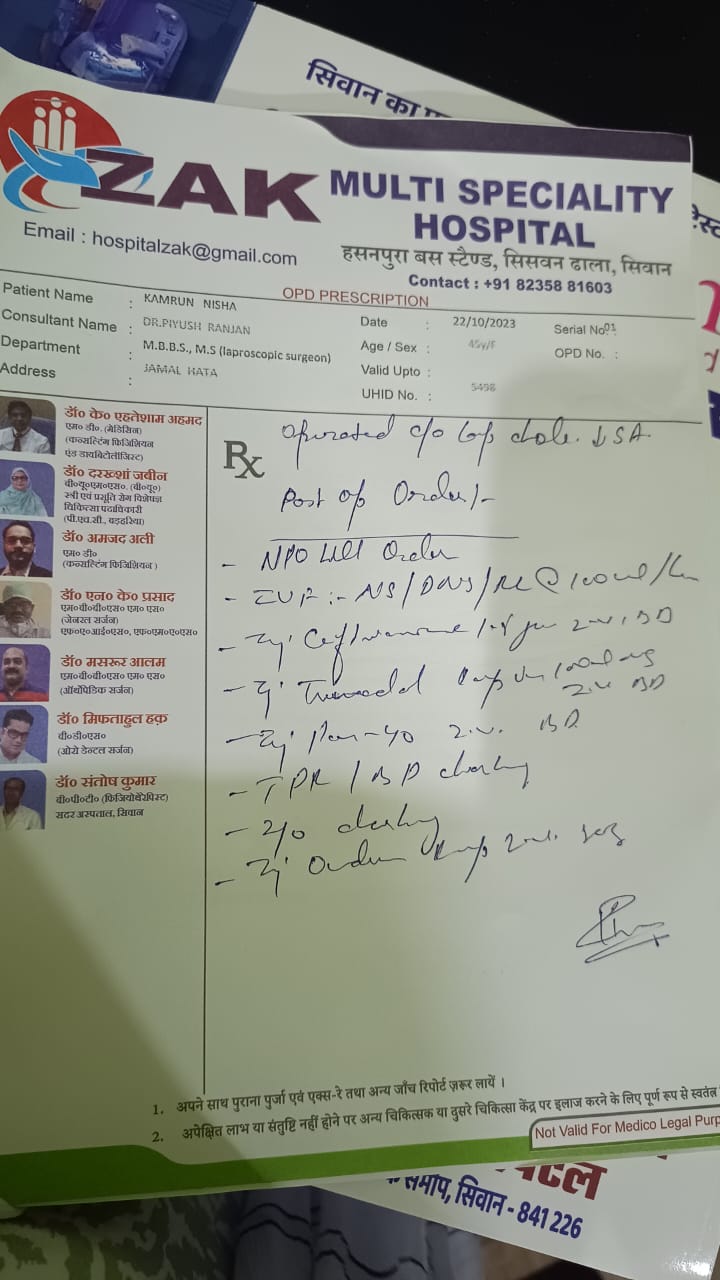 सिवान का
ZAK
MULTI SPECIALITY
HOSPITAL
Email : hospitalzak@gmail.com
हसनपुरा बस स्टैण्ड, सिसवन ढाला, सिवान
Contact : +91 82358 81603
OPD PRESCRIPTION
Patient Name : KAMRUN NISHA
Consultant Name : DR.PIYUSH RANJAN
Department : M.B.B.S., M.S (laproscopic surgeon)
Address : JAMAL HATA
Date : 22/10/2023
Age / Sex : 45y/F
Valid Upto :
UHID No. : 5498
Serial No: 01
OPD No. :
डॉ० के० एहतेशाम अहमद
एम० डी०. (मेडिसिन)
(कन्सल्टिंग फिजिशियन
एंड डायबिटोलॉजिस्ट)
डॉ० दरख्शां जबीन
बी०यू०एम०एस०. (बी०यू०)
स्त्री एवं प्रसूति रोग विशेषज्ञ
चिकित्सा पदाधिकारी
(पी.एच.सी., बड़हरिया)
डॉ० अमजद अली
एम० डी०
(कन्सल्टिंग फिजिशियन )
डॉ० एन० के० प्रसाद
एम०बी०बी०एस० एम० एस०
(जेनरल सर्जन)
एफ०ए०आई०एस०, एफ०एम०ए०एस०
डॉ० मसरूर आलम
एम०बी०बी०एस० एम० एस०
(ऑर्थोपेडिक सर्जन)
डॉ० मिफताहुल हक़
बी०डी०एस०
(ओरो डेन्टल सर्जन)
डॉ० संतोष कुमार
बी०पी०टी० (फिजियोथेरेपिस्ट)
सदर अस्पताल, सिवान
Rx
Operated c/o Lap chole. ↓ SA.
Post op Order/-
- NPO till Order
- IVF :- NS/DNS/RL @ 100 ml/hr
- Inj 1 gm I.V. BD
- Inj Tramadol amp in 100 ml NS I.V. BD
- Inj Pan-40 I.V. BD
- TPR / BP charting
- I/O charting
- Inj amp I.V.
1. अपने साथ पुराना पुर्जा एवं एक्स-रे तथा अन्य जाँच रिपोर्ट ज़रूर लायें ।
2. अपेक्षित लाभ या संतुष्टि नहीं होने पर अन्य चिकित्सक या दुसरे चिकित्सा केंद्र पर इलाज करने के लिए पूर्ण रूप से स्वतंत्र
Not Valid For Medico Legal Purp
के समीप, सिवान - 841 226